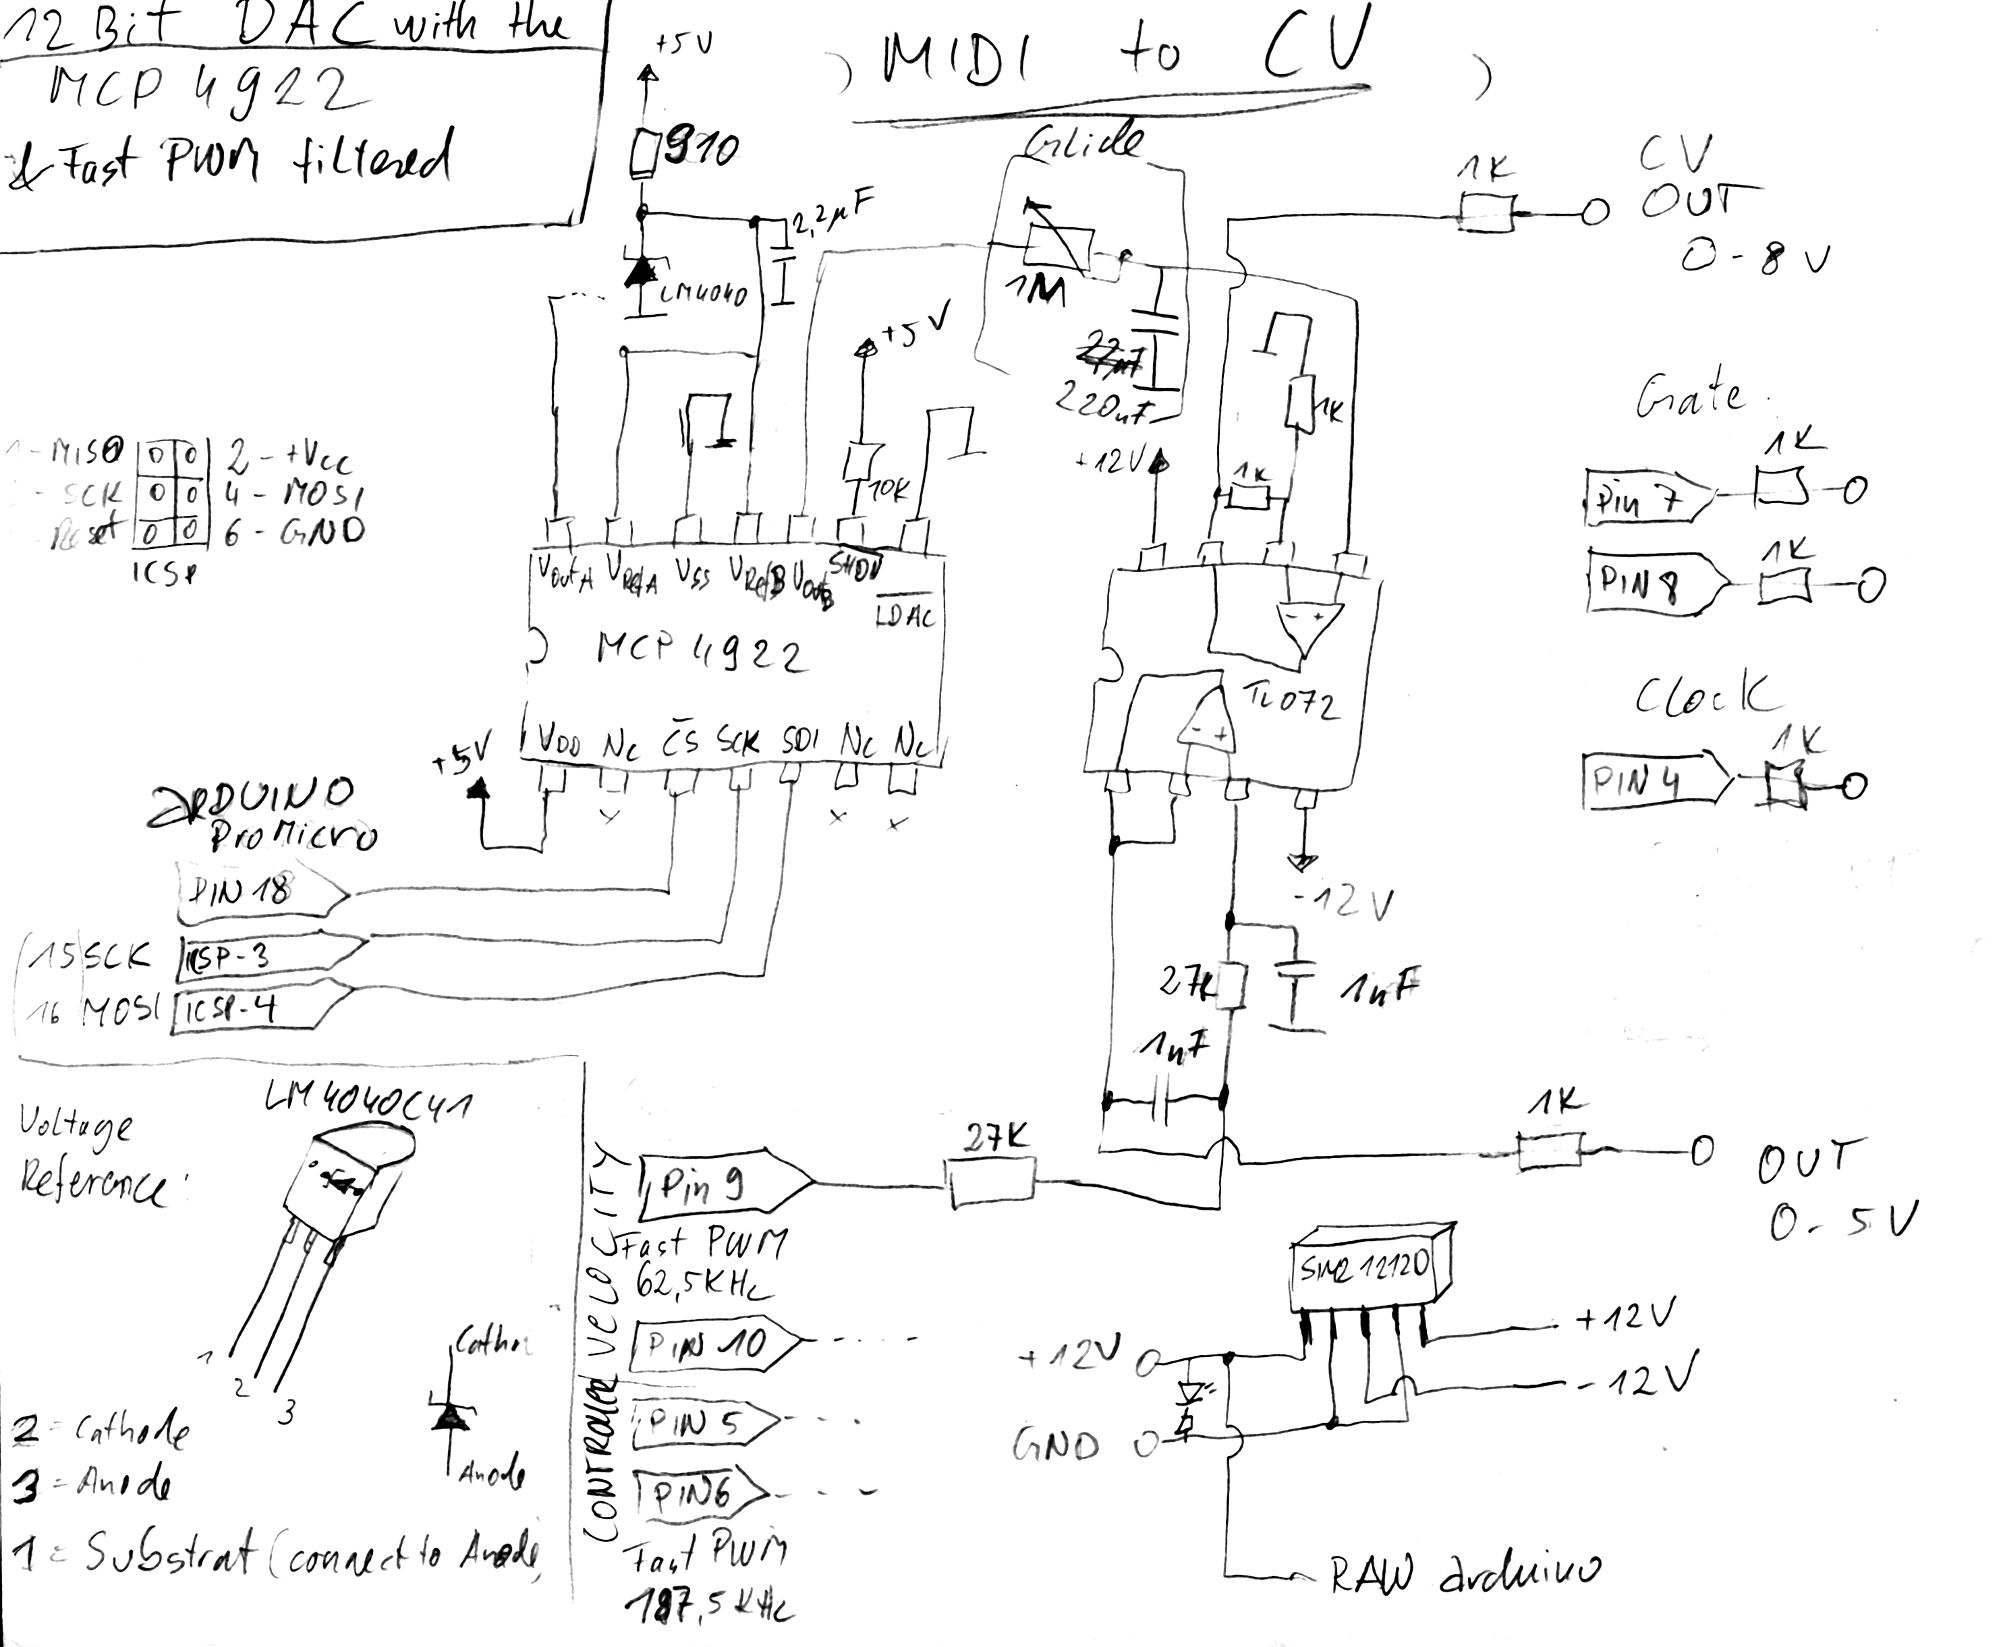 12 Bit DAC with the
MCP 4922
& Fast PWM filtered
MIDI to CV
+5V
910
2,2µF
LM4040
Glide
1M
22µF
220nF
+5V
10K
1K
CV
OUT
0-8V
1K
1K
+12V
Gate
Pin 7
1K
PIN 8
1K
Clock
PIN 4
1K
MISO
2 - +Vcc
SCK
4 - MOSI
Reset
6 - GND
ICSP
VoutA
VRefA
VSS
VRefB
VOutB
SHDN
LDAC
MCP 4922
VDD
NC
CS
SCK
SDI
NC
NC
+5V
x
x
x
- +
TL072
- +
-12V
ARDUINO
Pro Micro
PIN 18
15 SCK
ICSP-3
16 MOSI
ICSP-4
27K
1nF
1nF
Voltage
Reference:
LM4040C41
1
2
3
2 = Cathode
3 = Anode
1 = Substrat (connect to Anode)
Anode
VELOCITY
CONTROLLER
Pin 9
27K
Fast PWM
62,5KHz
PIN 10
PIN 5
PIN 6
Fast PWM
187,5KHz
1K
OUT
0-5V
+12V
-12V
+12V
GND
RAW arduino